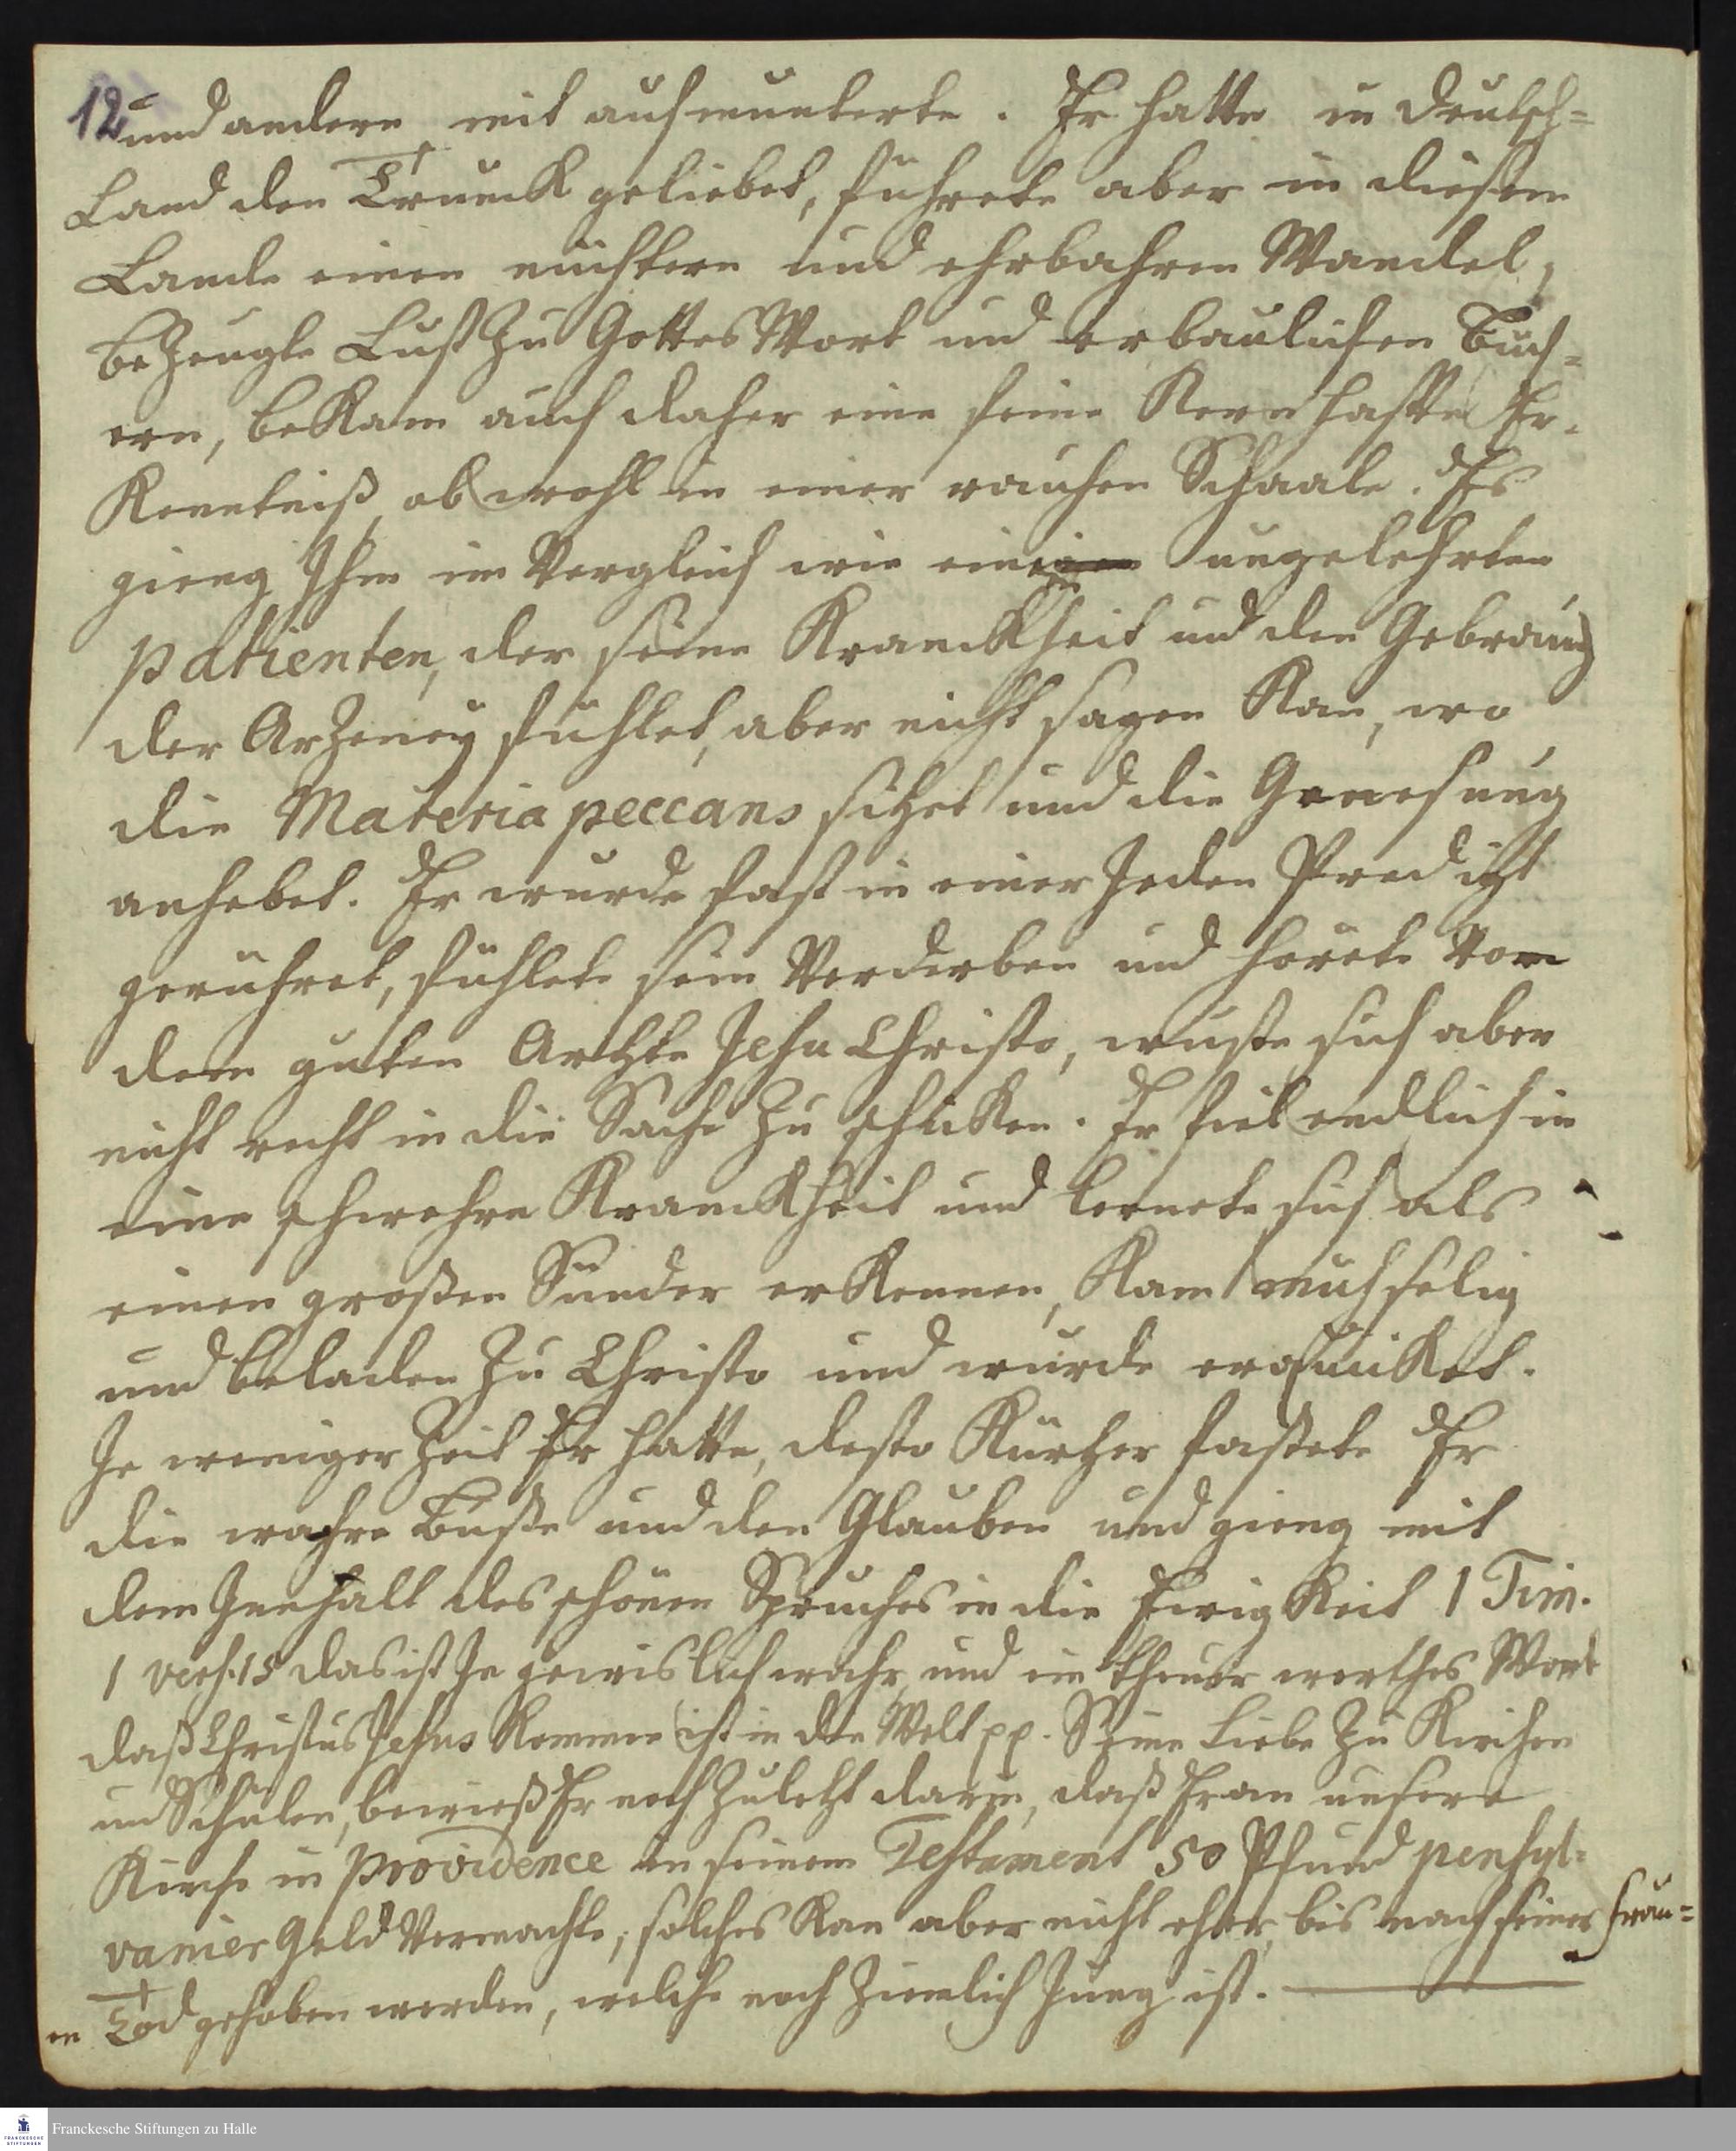 12
und andere mit aufmunterte. Er hatte in Deutsch=
Land den Trunck geliebet, führete aber in diesem
Lande einen nüchtern und ehrbahren Wandel,
beZeugte Lust Zu Gottes Wort und erbaulichen Büch=
ern, beKam auch daher eine feine Kernhaffte Er=
Kenntniß, obwohl in einer rauhen Schaale. Es
gieng Ihm im Vergleich wie einem ungelehrten
patienten, der seine Kranckheit und den Gebrauch
der ArZeney fühlet, aber nicht sagen Kan, wo
die Materia peccans sitzet und die Genesung
anhebet. Er wurde fast in einer Jeden Predigt
gerühret, fühlete sein Verderben und hörete von
dem guten Artzte Jesu Christo, wuste sich aber
nicht recht in die Sache Zu schicken. Er fiel endlich in
eine schwehre Kranckheit und lernete sich als
einen großen Sünder erKennen, Kam mühselig
und beladen Zu Christo und wurde erquicket.
Je weniger Zeit Er hatte, desto Kürtzer faßete Er
die wahre Buße und den Glauben und gieng mit
dem Innhalt des schönen Spruches in die EwigKeit 1 Tim.
1 vers. 15 das ist Je gewislich wahr, und ein theuer werthes Wort
daß Christus Jesus Kommen ist in die Welt pp. Seine Liebe Zu Kirchen
und Schulen, bewieß Er noch Zuletzt darin, daß Er an unsere
Kirche in Providence in seinem Testament 50 Pfund pensyl=
vanier Geld Vermachte, solches Kan aber nicht eher, bis nach seiner Frau=
en Tod gehoben werden, welche noch Ziemlich Jung ist.
Franckesche Stiftungen zu Halle